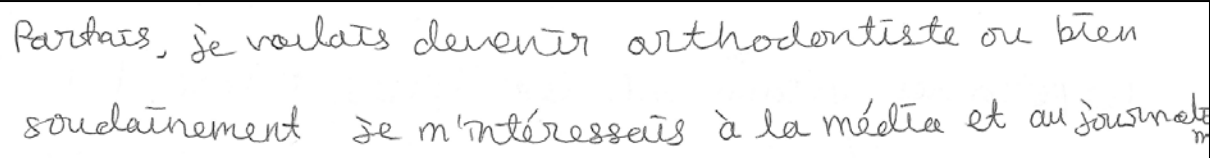 Parfois, je voulais devenir orthodontiste ou bien
soudainement je m'intéressais à la média et au